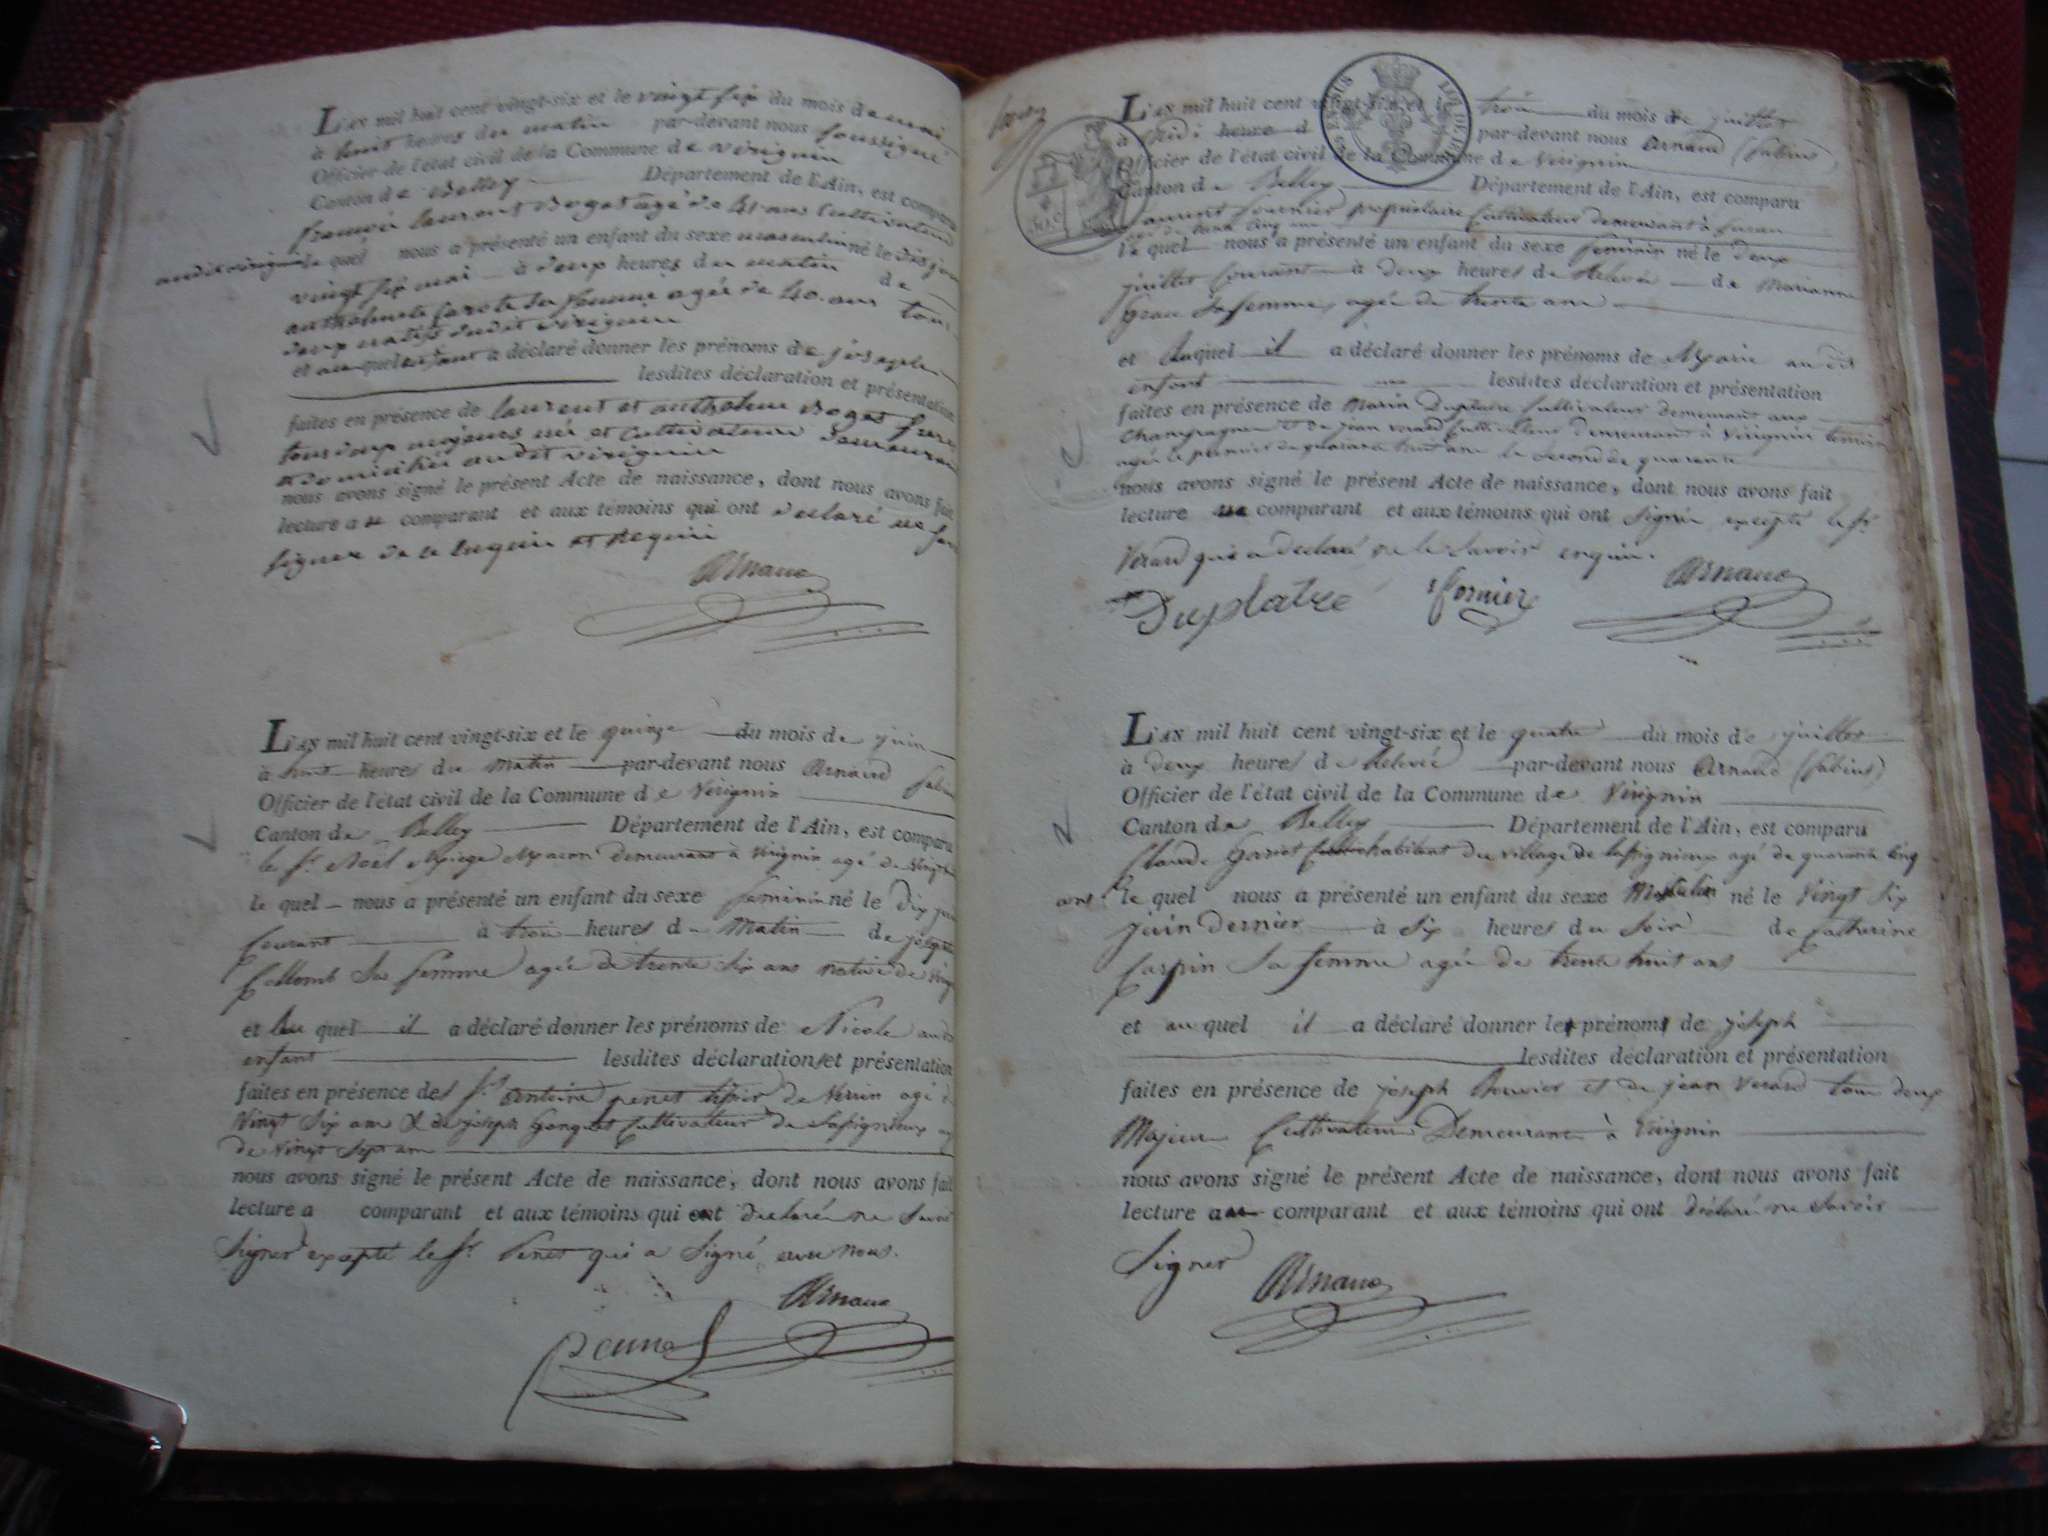 L'AN mil huit cent vingt-six et le vingt six du mois de mai
à huit heures du matin par-devant nous soussigné
Officier de l'état civil de la Commune de virignin
Canton de Belley Département de l'Ain, est comparu
françois laurent Boget agé de 41 ans Cultivateur
audit virignin le quel nous a présenté un enfant du sexe masculin né le dit jour
vingt six mai à deux heures du matin de
sa femme agée de 40 ans tous
deux natifs dudit virignin
et au quel enfant a déclaré donner les prénoms de joseph
lesdites déclaration et présentation
faites en présence de laurent et anthelme Boget freres
tous deux majeurs et Cultivateurs demeurant
et domiciliés audit virignin
nous avons signé le présent Acte de naissance, dont nous avons fait
lecture au comparant et aux témoins qui ont déclaré ne savoir
signer de ce enquis et requis
Arnaud
L'AN mil huit cent vingt-six et le quinze du mois de juin
à huit heures du Matin par-devant nous Arnaud fabius
Officier de l'état civil de la Commune de Virignin
Canton de Belley Département de l'Ain, est comparu
le Sr. Noël Maçon demeurant à Virignin agé de vingt
le quel nous a présenté un enfant du sexe feminin né le Dix juin
Courant à trois heures du Matin de
Collomb Sa femme agée de trente six ans native de
et au quel il a déclaré donner les prénoms de Nicole audit
enfant lesdites déclaration et présentation
faites en présence des Sr. Antoine penet de agé de
Vingt Six ans & de joseph Cultivateur de
de Vingt Sept ans
nous avons signé le présent Acte de naissance, dont nous avons fait
lecture a comparant et aux témoins qui ont declaré ne Savoir
Signer excepté le Sr. Penet qui a Signé avec nous.
Arnaud
L'AN mil huit cent vingt-six et le trois du mois de juillet
à Midi heure d par-devant nous Arnaud (fabius)
Officier de l'état civil de la Commune de Virignin
Canton de Belley Département de l'Ain, est comparu
Laurent fornier propriétaire Cultivateur demeurant à
agé de trente cinq ans
le quel nous a présenté un enfant du sexe feminin né le Deux
juillet Courant à deux heures de Relevée de Marianne
Sa femme, agée de trente ans
et auquel il a déclaré donner les prénoms de Marie au dit
enfant lesdites déclaration et présentation
faites en présence de Marin Duplatre Cultivateur demeurant aux
champagne et de jean verard Cultivateur demeurant à Virignin temoins
agés le premier de quarante huit ans le second de quarante
nous avons signé le présent Acte de naissance, dont nous avons fait
lecture au comparant et aux témoins qui ont Signés excepté le Sr.
Verard qui a declaré ne le Savoir enquis.
Duplatre fornier Arnaud
L'AN mil huit cent vingt-six et le quatre du mois de juillet
à deux heures de Relevée par-devant nous Arnaud (fabius)
Officier de l'état civil de la Commune de Virignin
Canton de Belley Département de l'Ain, est comparu
Claude habitant du village de agé de quarante Cinq
ans le quel nous a présenté un enfant du sexe Masculin né le Vingt Six
juin Dernier à Six heures du Soir de Catherine
Carpin Sa femme agée de trente huit ans
et au quel il a déclaré donner les prénoms de joseph
lesdites déclaration et présentation
faites en présence de joseph et de jean Verard tous deux
Majeurs Cultivateurs Demeurant à Virignin
nous avons signé le présent Acte de naissance, dont nous avons fait
lecture au comparant et aux témoins qui ont déclaré ne Savoir
Signer
Arnaud